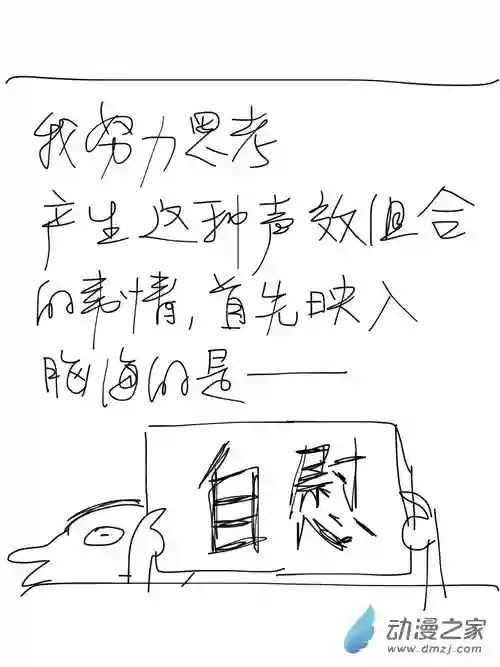 我努力思考
产生这种声效组合
的事情，首先映入
脑海的是——
自慰
动漫之家
www.dmzj.com